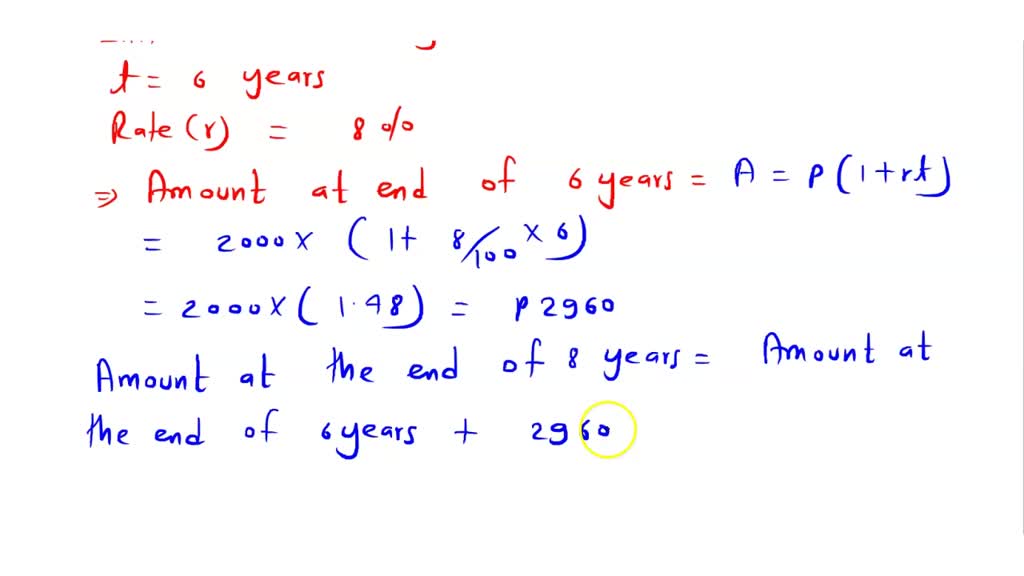 t = 6 years
Rate (r) = 8 %
⇒ Amount at end of 6 years = A = P (1 + rt)
= 2000 × (1 + 8/100 × 6)
= 2000 × (1.48) = P 2960
Amount at the end of 8 years = Amount at
the end of 6 years + 2960